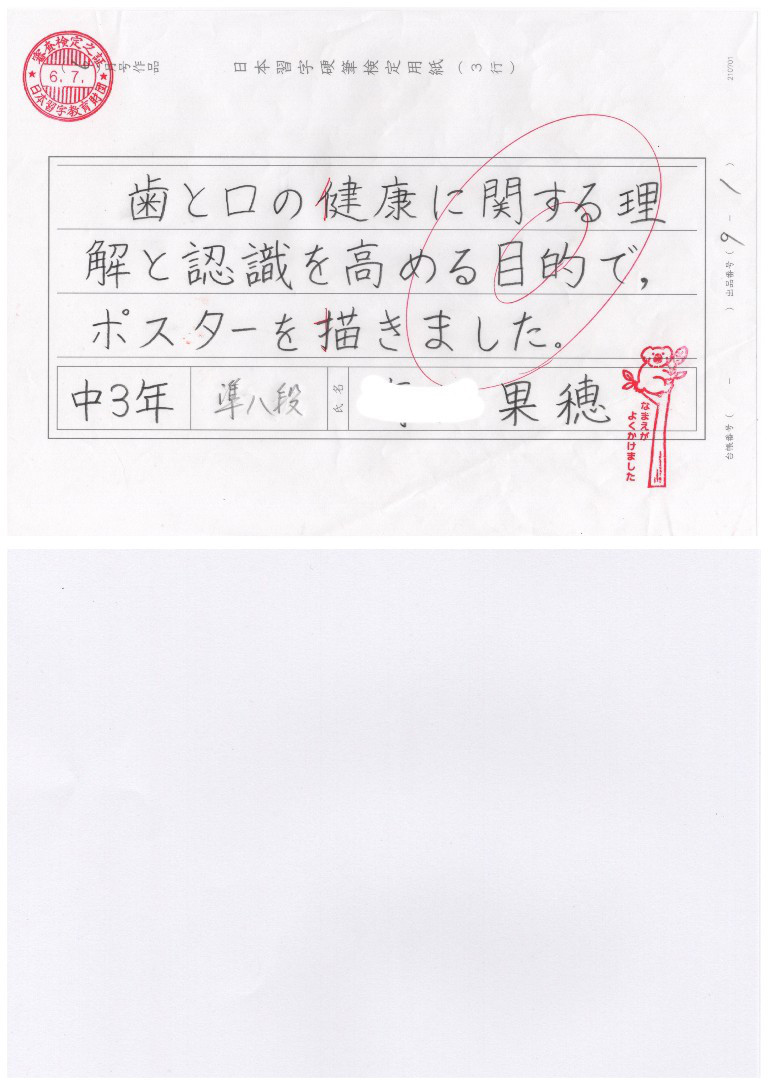 審査検定之証
6.7.
日本習字教育財団
月号作品
日本習字硬筆検定用紙（3行）
210701
歯と口の健康に関する理
解と認識を高める目的で,
ポスターを描きました。
中3年
準八段
氏名
果穂
なまえが
よくかけました
出品番号（9-1）
台帳番号（ - ）